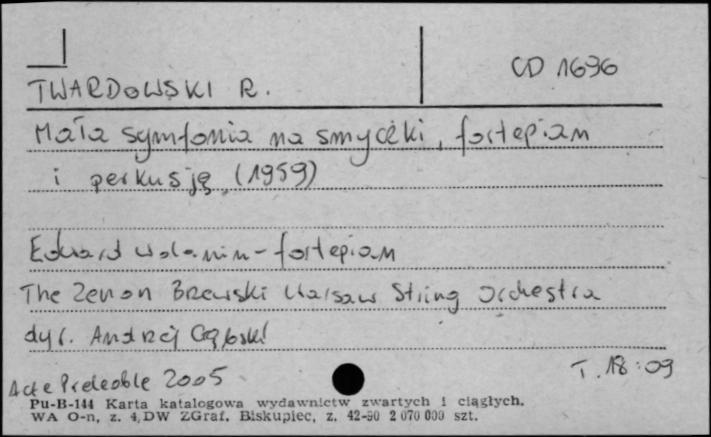 CD 1696
TWARDOWSKI R.
Mała symfonia na smyczki, fortepian
i perkusję (1959)
Edward Wolanin - fortepian
The Zenon Brzewski Warsaw String Orchestra
dyr. Andrzej Gębski
T. 18:09
Acte Préalable 2005
Pu-B-144 Karta katalogowa wydawnictw zwartych i ciągłych.
WA O-n, z. 4, DW ZGraf. Biskupiec, z. 42-90 2 070 000 szt.